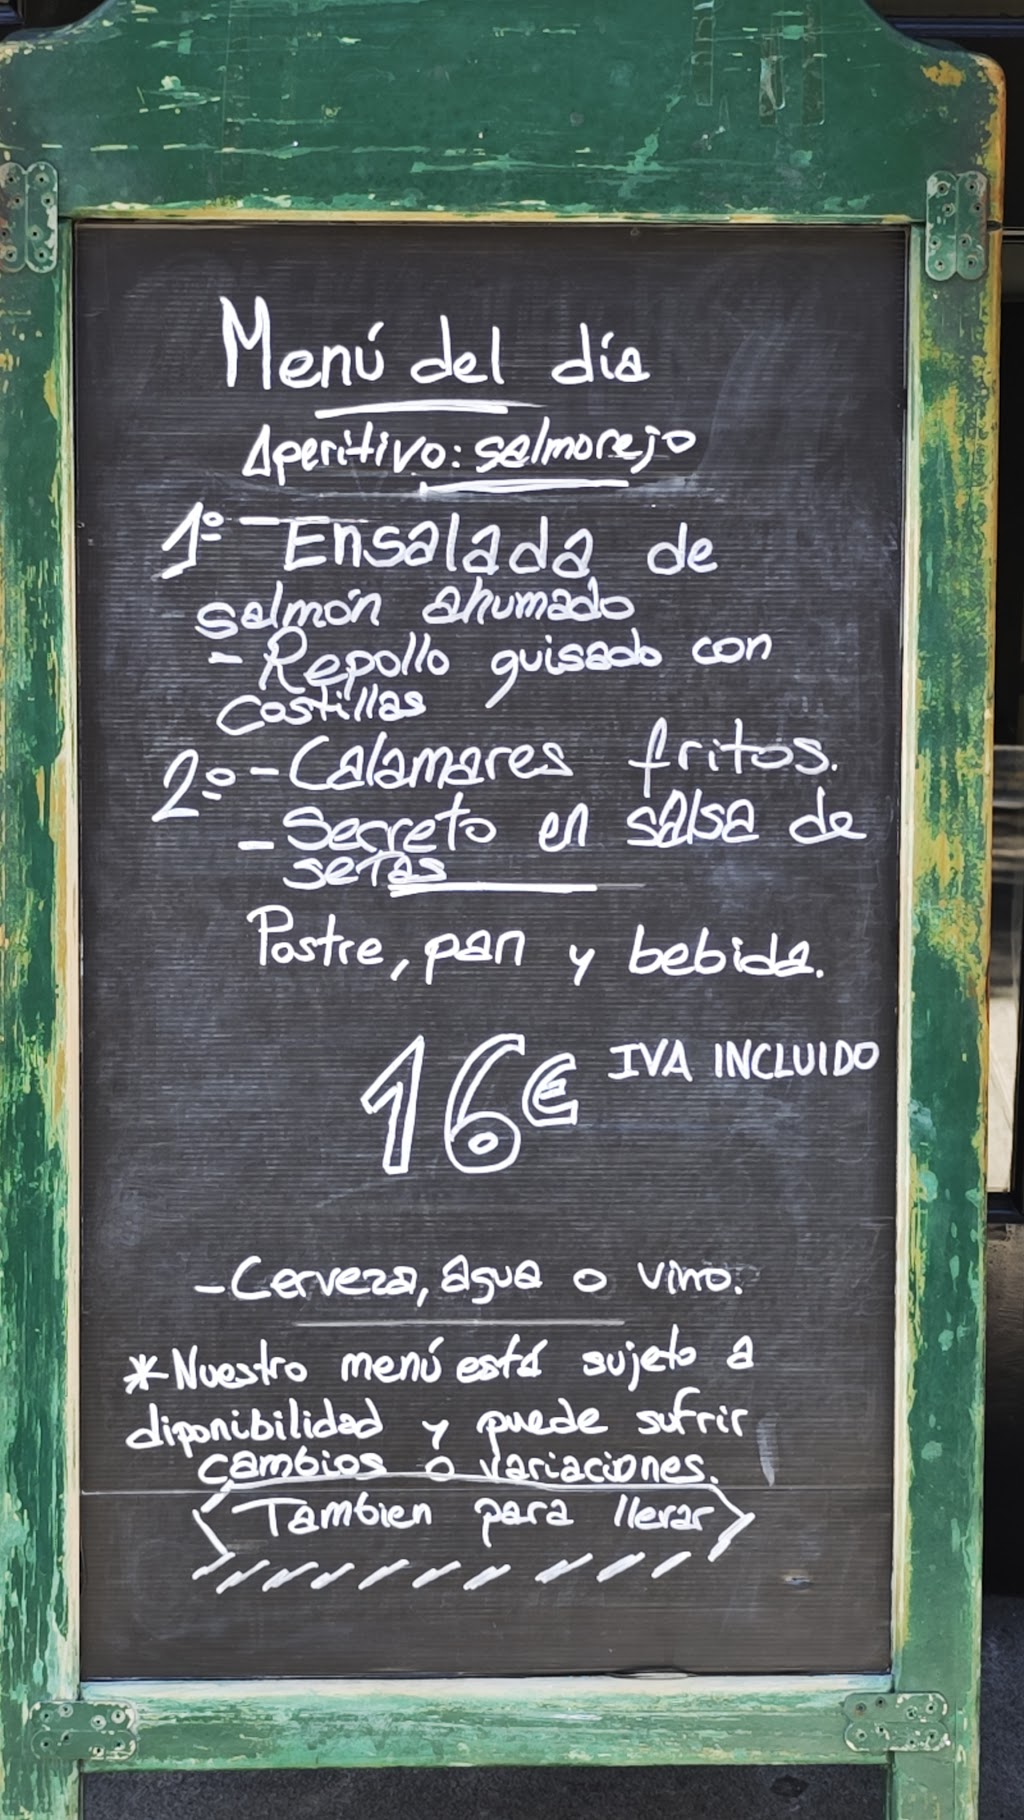 Menú del día
Aperitivo: salmorejo
1º - Ensalada de
salmón ahumado
- Repollo guisado con
Costillas
2º - Calamares fritos.
- Secreto en salsa de
setas
Postre, pan y bebida.
16€ IVA INCLUIDO
- Cerveza, agua o vino.
* Nuestro menú está sujeto a
diponibilidad y puede sufrir
cambios o variaciones.
Tambien para llevar